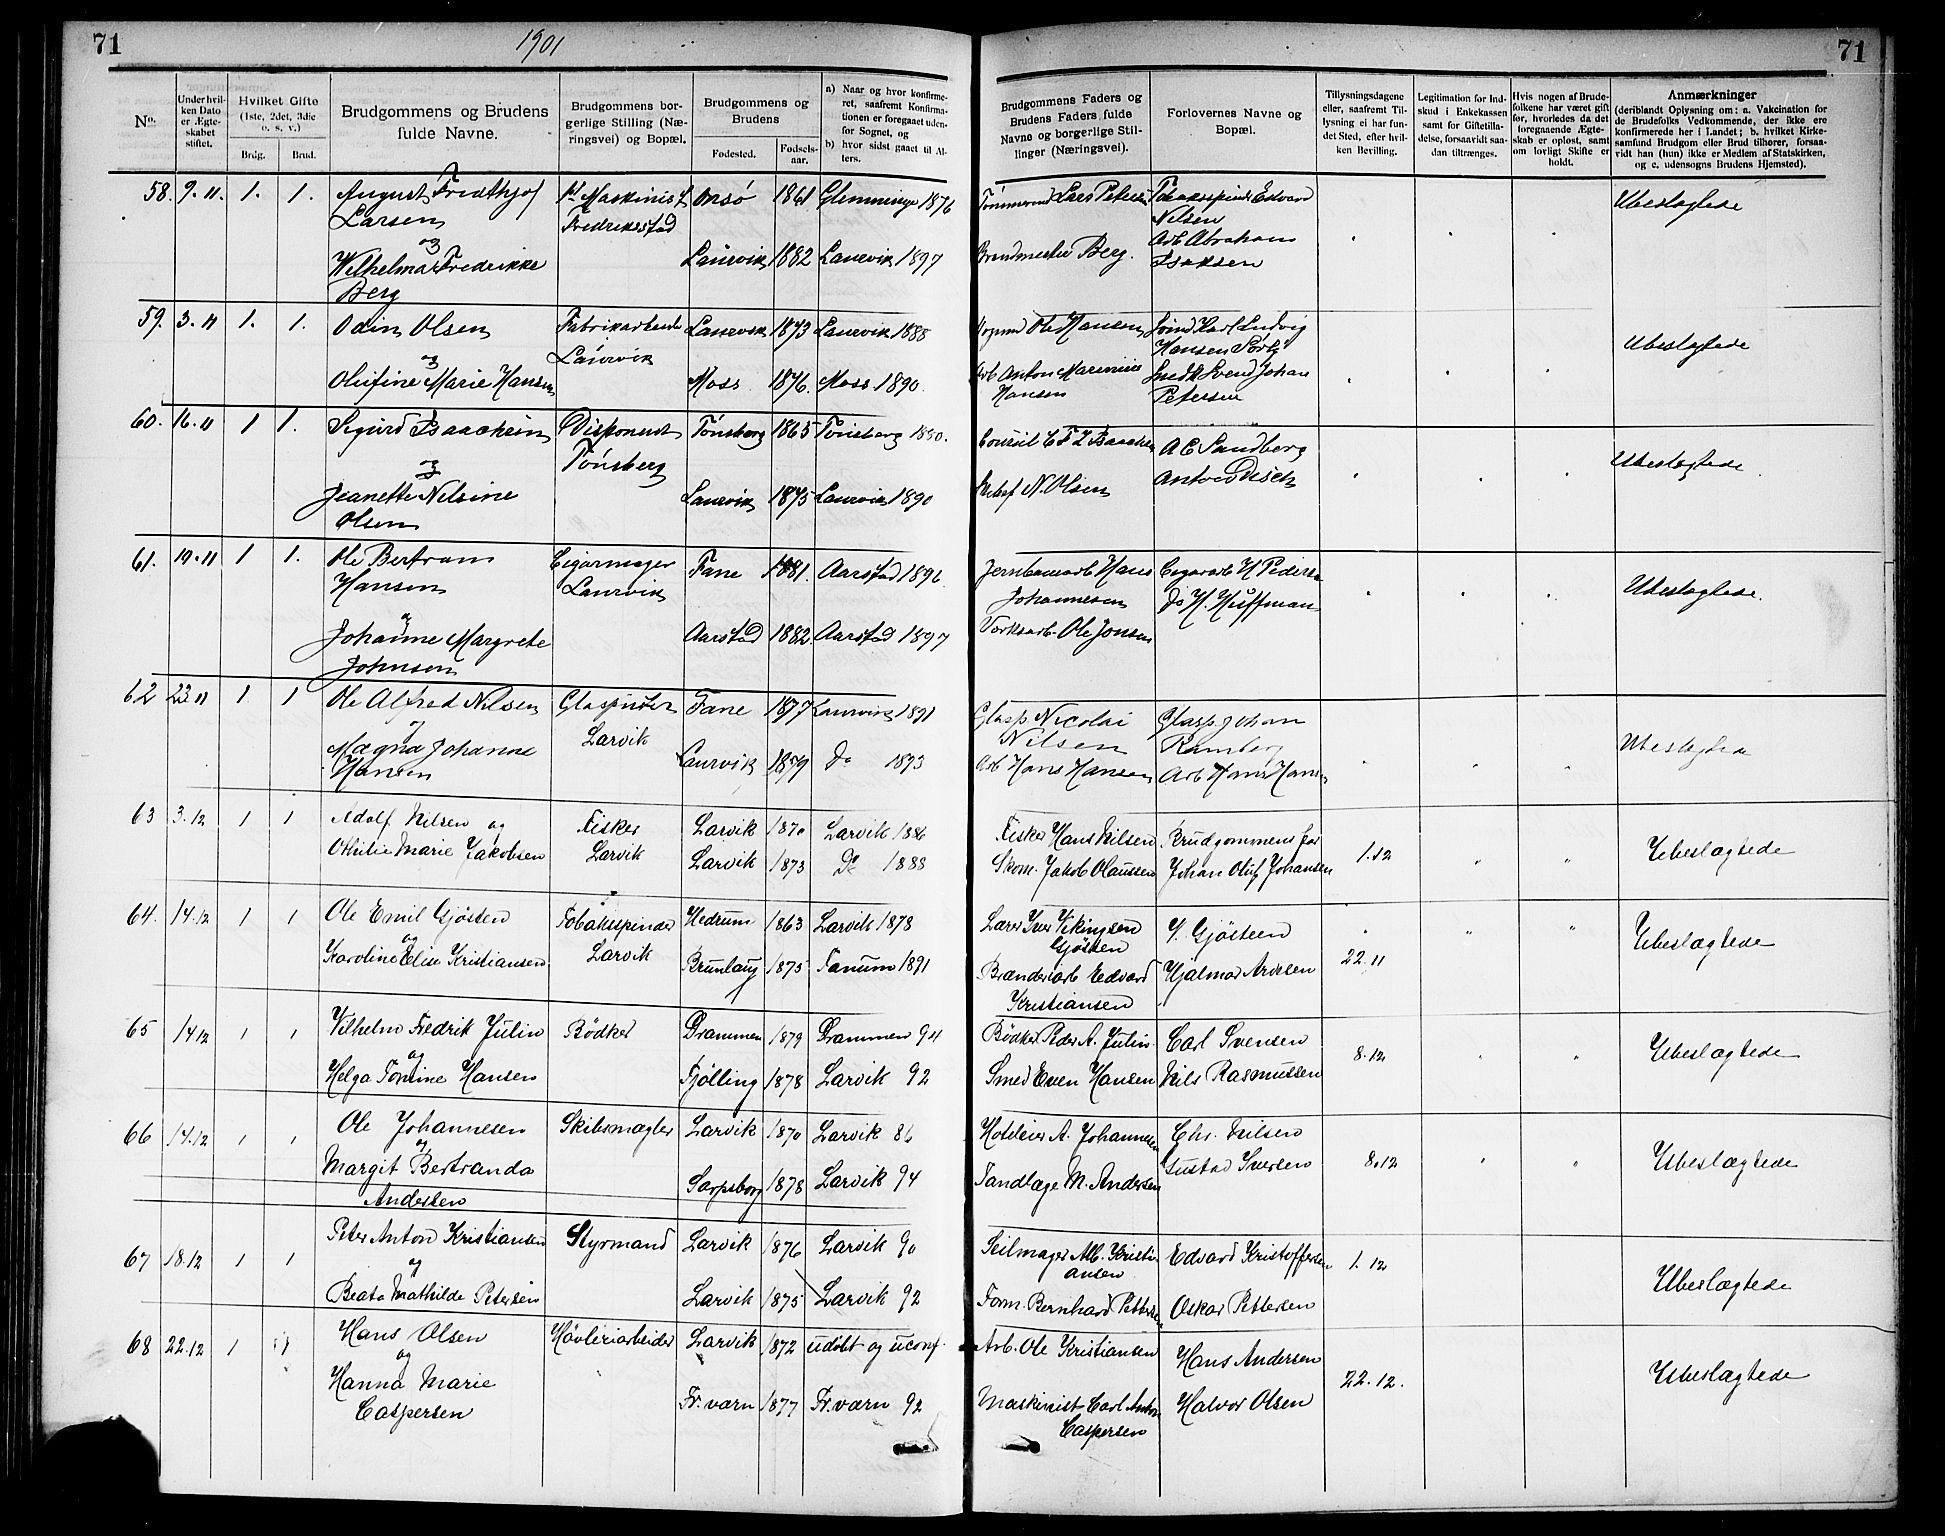 71
1901
71
No.
Under hvilken Dato er Ægteskabet stiftet.
Hvilket Gifte (1ste, 2det, 3die o. s. v.)
Brdg.
Brud.
Brudgommens og Brudens fulde Navne.
Brudgommens borgerlige Stilling (Næringsvei) og Bopæl.
Brudgommens og Brudens
Fødested.
Fødselsaar.
a) Naar og hvor konfirmeret, saafremt Konfirmationen er foregaaet udenfor Sognet, og
b) hvor sidst gaaet til Alters.
Brudgommens Faders og Brudens Faders fulde Navne og borgerlige Stillinger (Næringsvei).
Forlovernes Navne og Bopæl.
Tillysningsdagene eller, saafremt Tillysning ei har fundet Sted, efter hvilken Bevilling.
Legitimation for Indskud i Enkekassen samt for Giftetilladelse, forsaavidt saadan tiltrænges.
Hvis nogen af Brudefolkene har været gift før, hvorledes da det foregaaende Ægteskab er opløst, samt om lovligt Skifte er holdt.
Anmærkninger
(deriblandt Oplysning om: a. Vakcination for de Brudefolks Vedkommende, der ikke ere konfirmerede her i Landet; b. hvilket Kirkesamfund Brudgom eller Brud tilhører, forsaavidt han (hun) ikke er Medlem af Statskirken, og c. udensogns Brudens Hjemsted).
58. 9.11. 1. 1. August Fridthjof 1st Maskinist Onsø 1861 Glemminge 1876 Tømmermd Lars Petersen Tobaksspinder Edvard Ubeslægtede
Larsen Fredrikstad Nilsen
og Arb Abraham
Wilhelma Fredrikke Laurvik 1882 Laurvik 1897 Brandmester Berg. Isaksen
Berg
59. 3.11 1. 1. Odin Olsen Fabrikarbeider Laurvik 1873 Laurvik 1888 Ole Hansen Karl Ludvig Ubeslægtede
og Laurvik Hansen
Olufine Marie Hansen Moss 1876. Moss 1890. Arb Anton Marinius Svend Johan
Hansen Petersen
60. 16.11 1 1. Sigurd Isaachsen Disponent Tønsberg 1865 Tønsberg 1880. Consul Isaachsen A C Sandberg Ubeslægtede
og Tønsberg
Jeanette Nilsine Laurvik 1875 Laurvik 1890 N. Olsen Anton
Olsen
61. 19.11 1 1. Ole Bertram Cigarmager Fane 1881. Aarstad 1896 Jernbanearb Hans Cigararb H Pedersen Ubeslægtede.
Hansen Laurvik Johannesen Do H. Hoffman
og
Johanne Margrete Aarstad 1882. Aarstad 1897 Ole Jonsen
Johnsen
62 23.11 1 1 Ole Alfred Nilsen Glaspuster Fane 1877 Laurvik 1891 Glasp Nicolai Glasp. Johan Ubeslægtede
og Larvik Nilsen Ramberg
Magna Johanne Laurvik 1879 Do 1893 Arb Hans Hansen Arb Hans Hansen
Hansen
63 3.12 1 1 Adolf Nilsen og Fisker Larvik 1870 Larvik 1886 Fisker Hans Nilsen Brudgommens far 1.12 Ubeslægtede
Othilie Marie Jakobsen Larvik Larvik 1873 Do 1888 Skom. Jakob Olaussen Johan Oluf Johansen
64. 14.12 1 1 Ole Emil Gjøsten Tobakspinder Hedrum 1863 Larvik 1878 Lærer Iver Vikingsen Y. Gjøsteen Ubeslægtede
og Larvik Gjøsteen
Karoline Elise Kristiansen Brunlaug 1875 Tanum 1891 Bændeiarb Edvard Hjalmar Arvesen 22.11
Kristiansen
65 14.12 1 1 Vilhelm Fredrik Julin Bødker Drammen 1879 Drammen 94 Bødker Peder A. Julin. Carl Svensen 8.12 Ubeslægtede
og
Helga Tomine Hansen Tjølling 1878 Larvik 92 Smed Even Hansen Nils Rasmussen
66 14.12 1 1 Ole Johannesen Skibsmægler Larvik 1870 Larvik 86 Hoteleier A. Johannesen Chr. Nilsen 8.12 Ubeslægtede
og
Margit Bertranda Sarpsborg 1878 Larvik 94 Tandlæge M. Andersen Gustav Iversen
Andersen
67 18.12 1 1 Peter Anton Kristiansen Styrmand Larvik 1876 Larvik 90 Seilmager Alb. Kristiansen Edvard Kristoffersen 1.12 Ubeslægtede
og
Beata Mathilde Petersen Larvik 1875 Larvik 92 Form. Bernhard Pettersen Oskar Pettersen
68 22.12 1 1 Hans Olsen Høvleriarbeider Larvik 1872 udøbt og uconf. Arb. Ole Kristiansen Hans Andersen 22.12. Ubeslægtede
og
Hanna Marie Fr. værn 1877 Fr. værn 92 Maskinist Carl Anton Halvor Olsen
Caspersen Caspersen